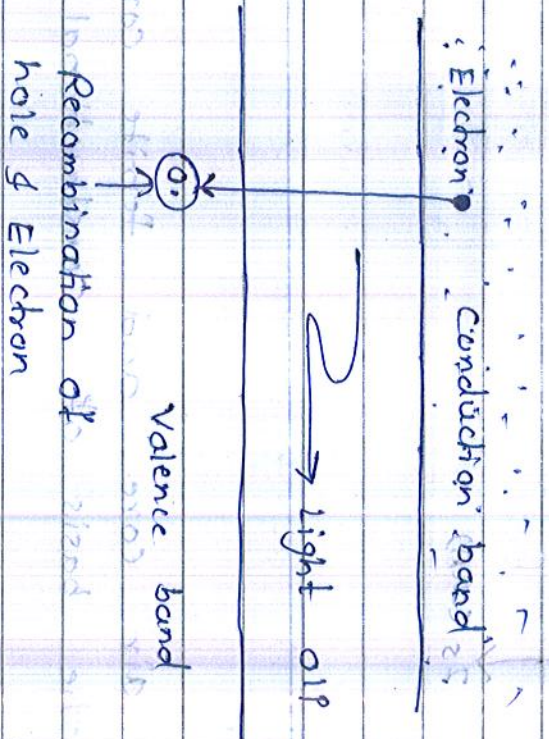 Electron
Conduction band
Light O/P
Valence band
Recombination of
hole & Electron